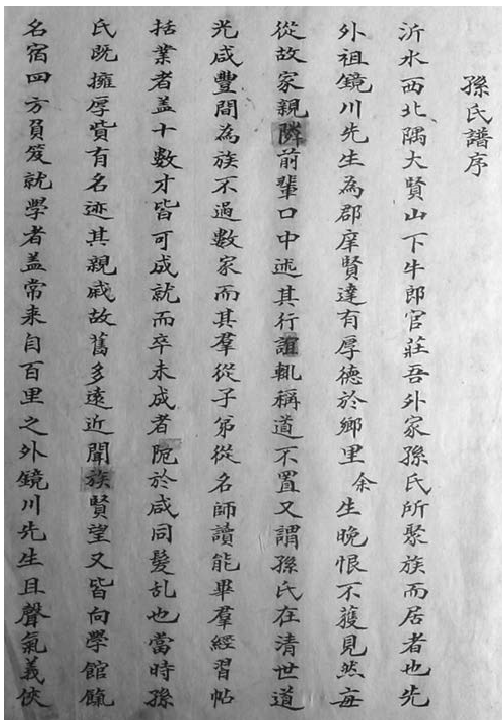 孫氏譜序
沂水西北隅大賢山下牛郎官莊吾外家孫氏所聚族而居者也先
外祖鏡川先生為郡庠賢達有厚德於鄉里余生晚恨不獲見然每
從故家親隣前輩口中述其行誼輒稱道不置又謂孫氏在清世道
光咸豐間為族不過數家而其羣從子弟從名師讀能畢羣經習帖
括業者蓋十數才皆可成就而卒未成者阨於咸同髮乱也當時孫
氏既擁厚貲有名迹其親戚故舊多遠近聞族賢望又皆向學館餼
名宿四方負笈就學者蓋常来自百里之外鏡川先生且聲氣義俠